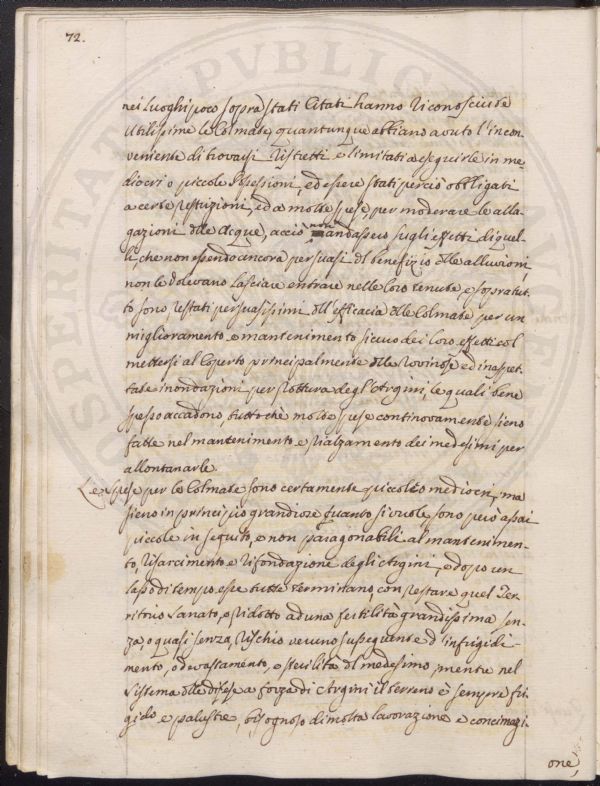 72.
nei Luoghi poco sopra stati Citati hanno riconosciute
Utilissime le Colmate, quantunque abbiano avuto l'incon
veniente di trovarsi ristretti e limitati a eseguirle in me
diocri o piccole Possessioni, ed essere stati perciò obbligati
a certe restrizioni, ed a molte spese, per moderare le alla
gazioni delle Acque, acciò non andassero sugli effetti di quel-
li, che non essendo ancora persuasi del benefizio delle alluvioni
non le volevano lasciare entrare nelle loro tenute, e sopratut-
to sono restati persuasissimi dell'efficacia delle Colmate per un
miglioramento, e mantenimento sicuro dei loro effetti col
mettersi al Coperto principalmente dalle rovinose ed inaspet
tate inondazioni per rottura degl'Argini, le quali bene
spesso accadono, tuttochè molte spese continovamente sieno
fatte nel mantenimento e rialzamento dei medesimi per
allontanarle.
Le Spese per le Colmate sono certamente piccole o mediocri, ma
sieno in principio grandiose quanto si vuole, sono però assai
piccole in seguito, e non paragonabili al mantenimen-
to, risarcimento e rifondazione degli Argini, e dopo un
lasso di tempo esse tutte terminano, con restare quel Ter
ritorio Sanato, e ridotto ad una fertilità grandissima sen-
za, o quasi senza, rischio veruno susseguente d'infrigidi-
mento, o devastamento, o sterilità del medesimo, mentre nel
Sistema delle difese a forza di Argini il terreno è sempre fri
gido, e palustre, bisognoso di molta lavorazione e concimazi-
one,